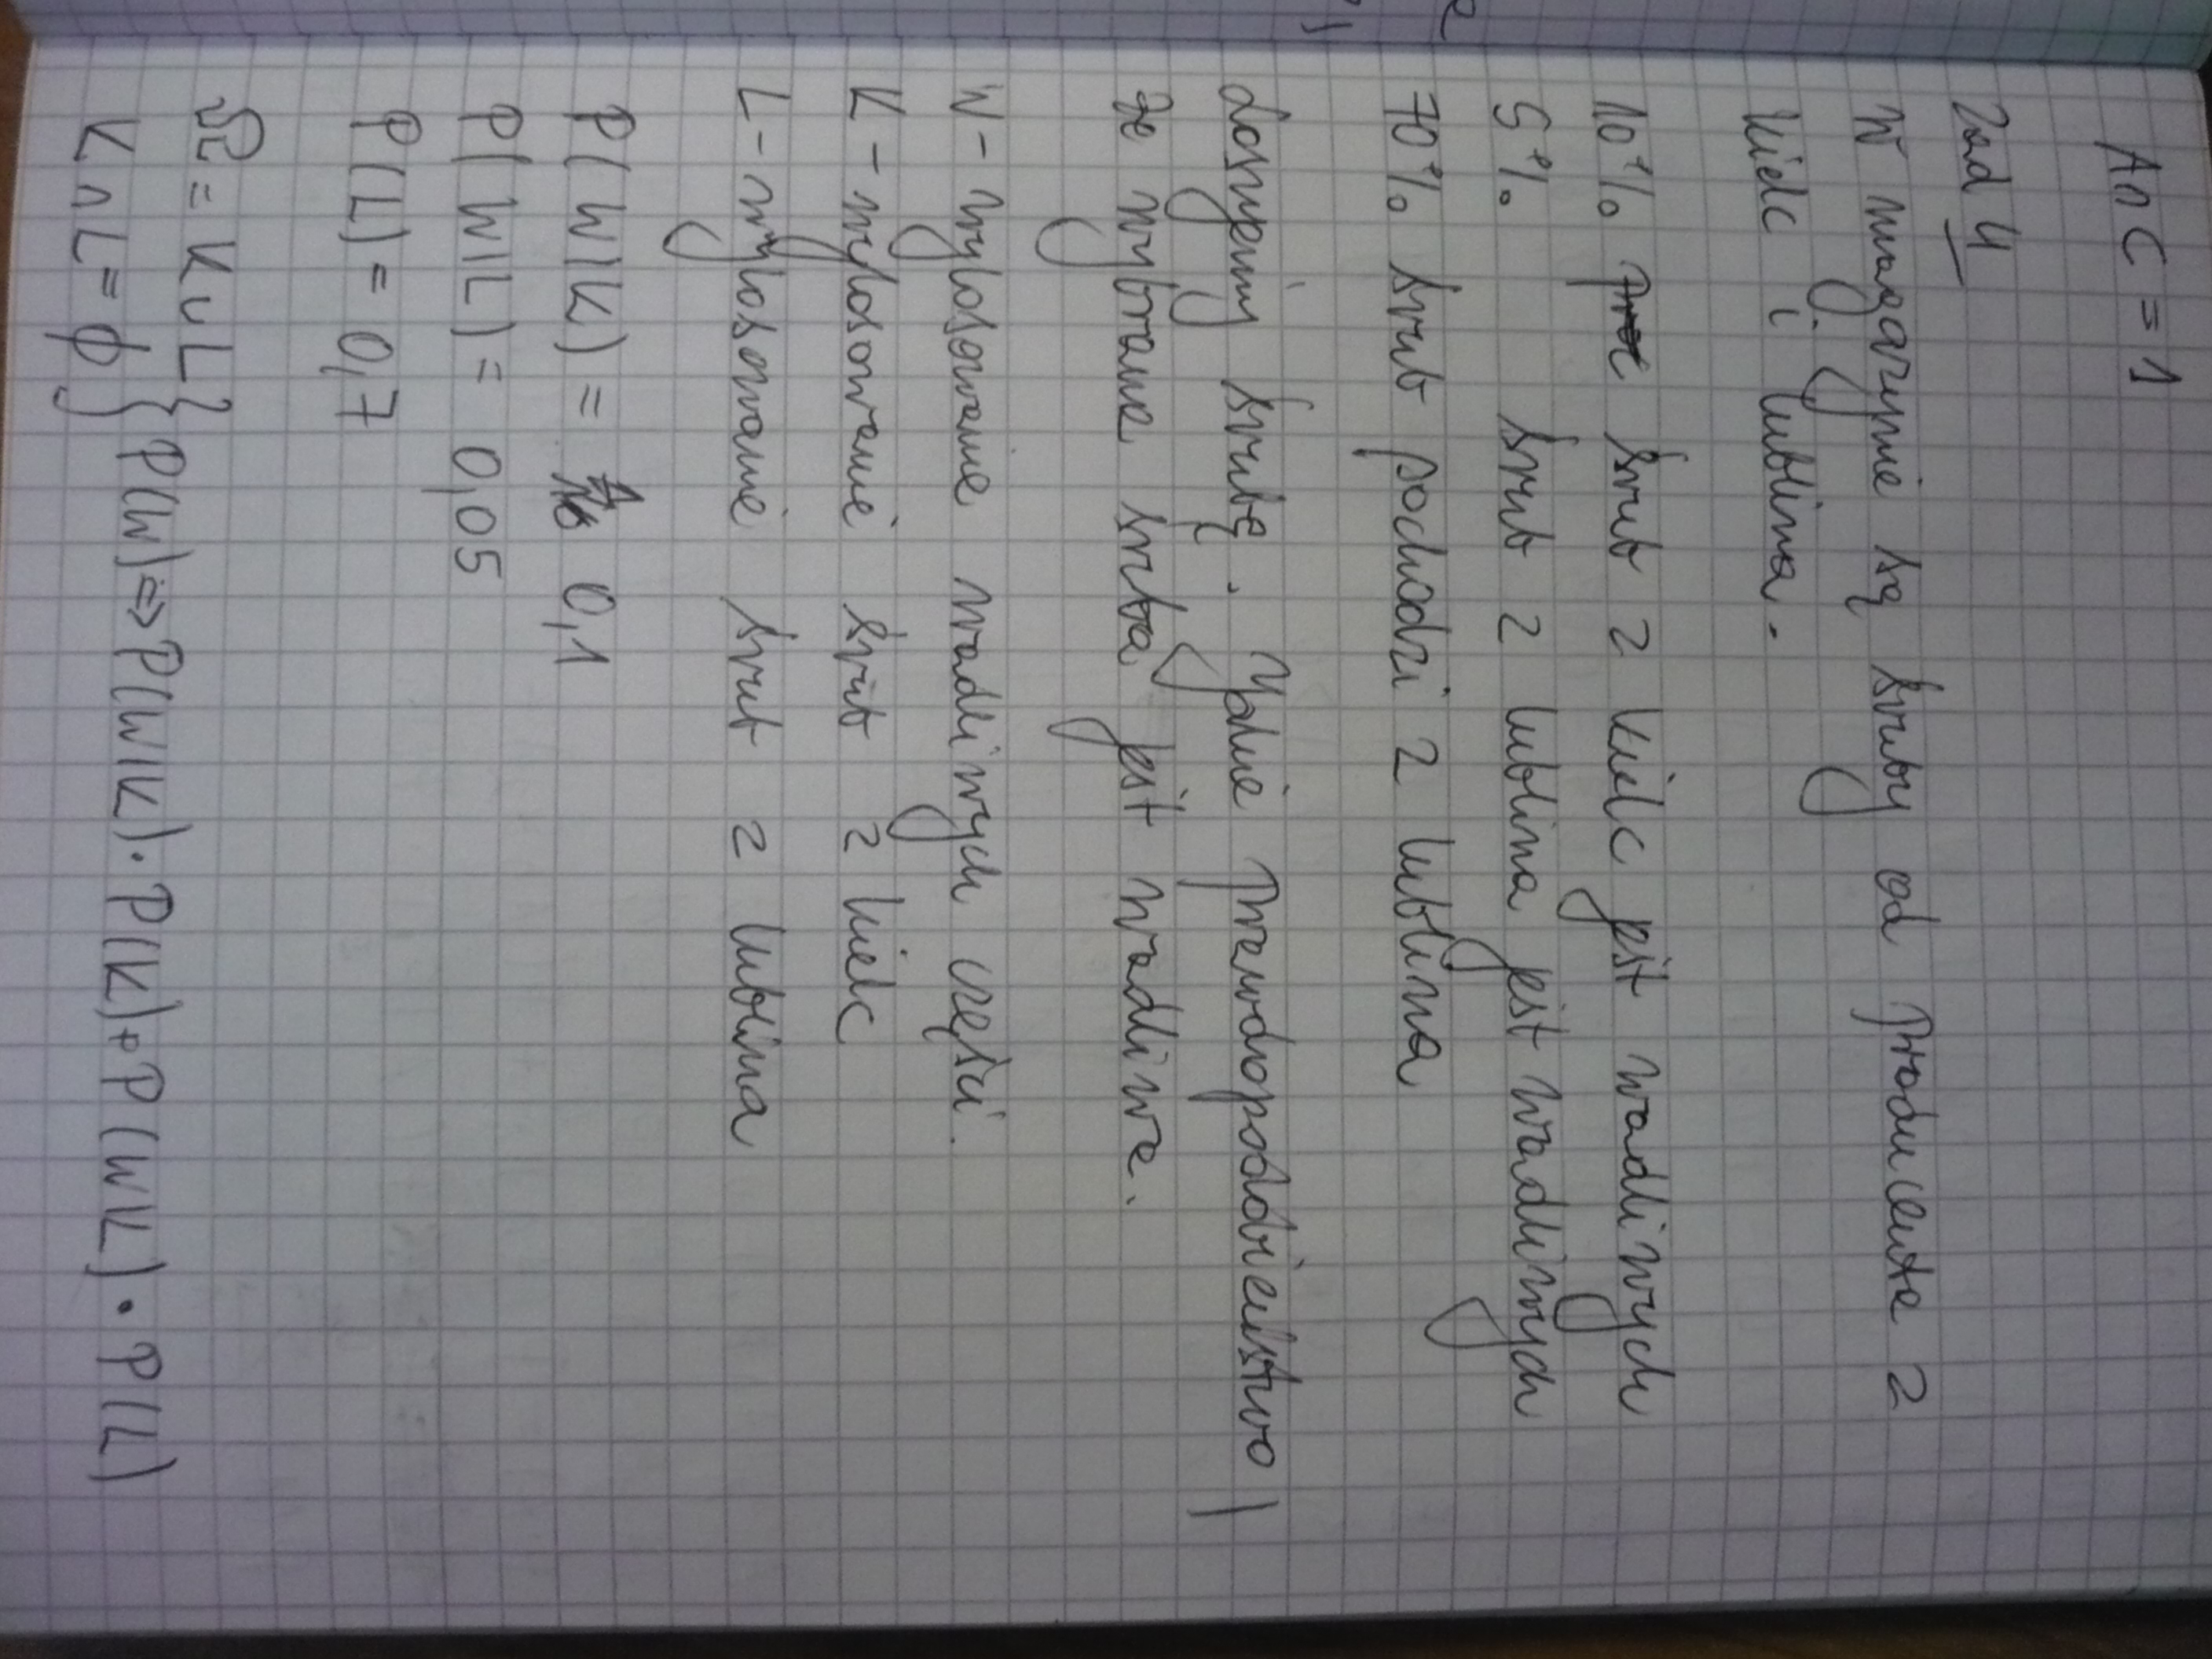 A∩C = 1
Zad 4
W magazynie są śruby od producenta z
kielc i lublina.
10% śrub z kielc jest wadliwych
5% śrub z lublina jest wadliwych
70% śrub pochodzi z lublina
Losujemy śrubę. Jakie prawdopodobieństwo
że wybrana śruba jest wadliwa.
W - wylosowanie wadliwych części.
K - wylosowanie śrub z kielc
L - wylosowanie śrub z lublina
P(W|K) = 0,1
P(W|L) = 0,05
P(L) = 0,7
Ω = K∪L
K∩L = ∅ } P(W) => P(W|K) · P(K) + P(W|L) · P(L)